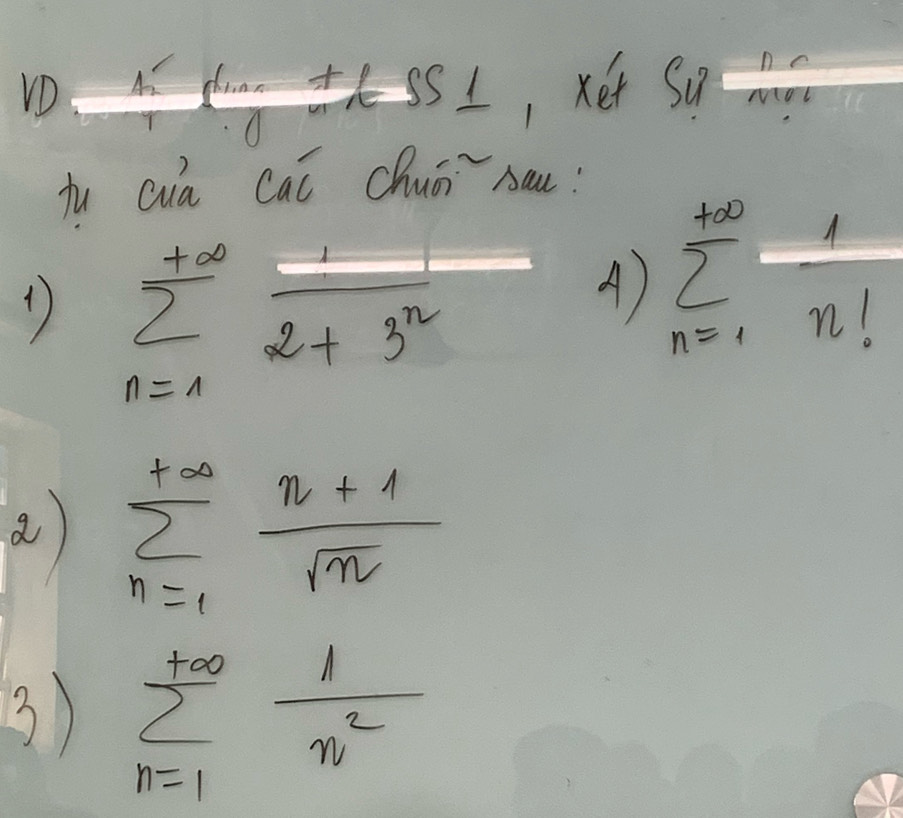 VD. Áp dụng đ.l SS 1, xét sự hội
tụ của các chuỗi sau:
1) \sum_{n=1}^{+\infty} \frac{1}{2+3^n}
4) \sum_{n=1}^{+\infty} \frac{1}{n!}
2) \sum_{n=1}^{+\infty} \frac{n+1}{\sqrt{n}}
3) \sum_{n=1}^{+\infty} \frac{1}{n^2}